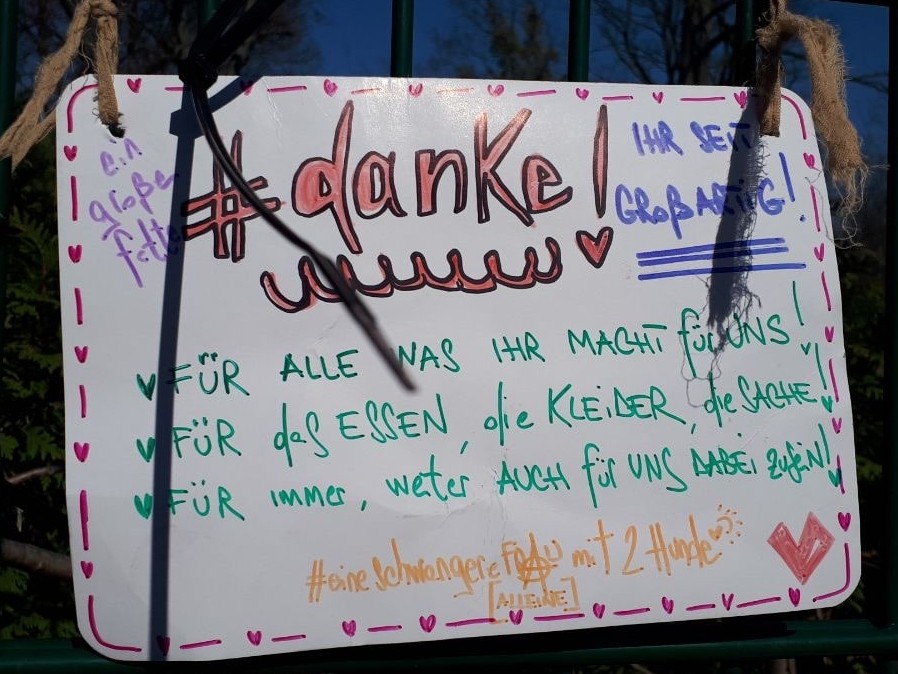 ein
großer
fetter
#danke!
IHR SEIT
GROßARTIG!
FÜR ALLE WAS IHR MACHT für UNS!
FÜR das ESSEN, die KLEIDER, die SACHE!
FÜR immer, weter AUCH für UNS DABEI zusein!
#eine schwangere FRAU mit 2 Hunde
[ALLEINE]